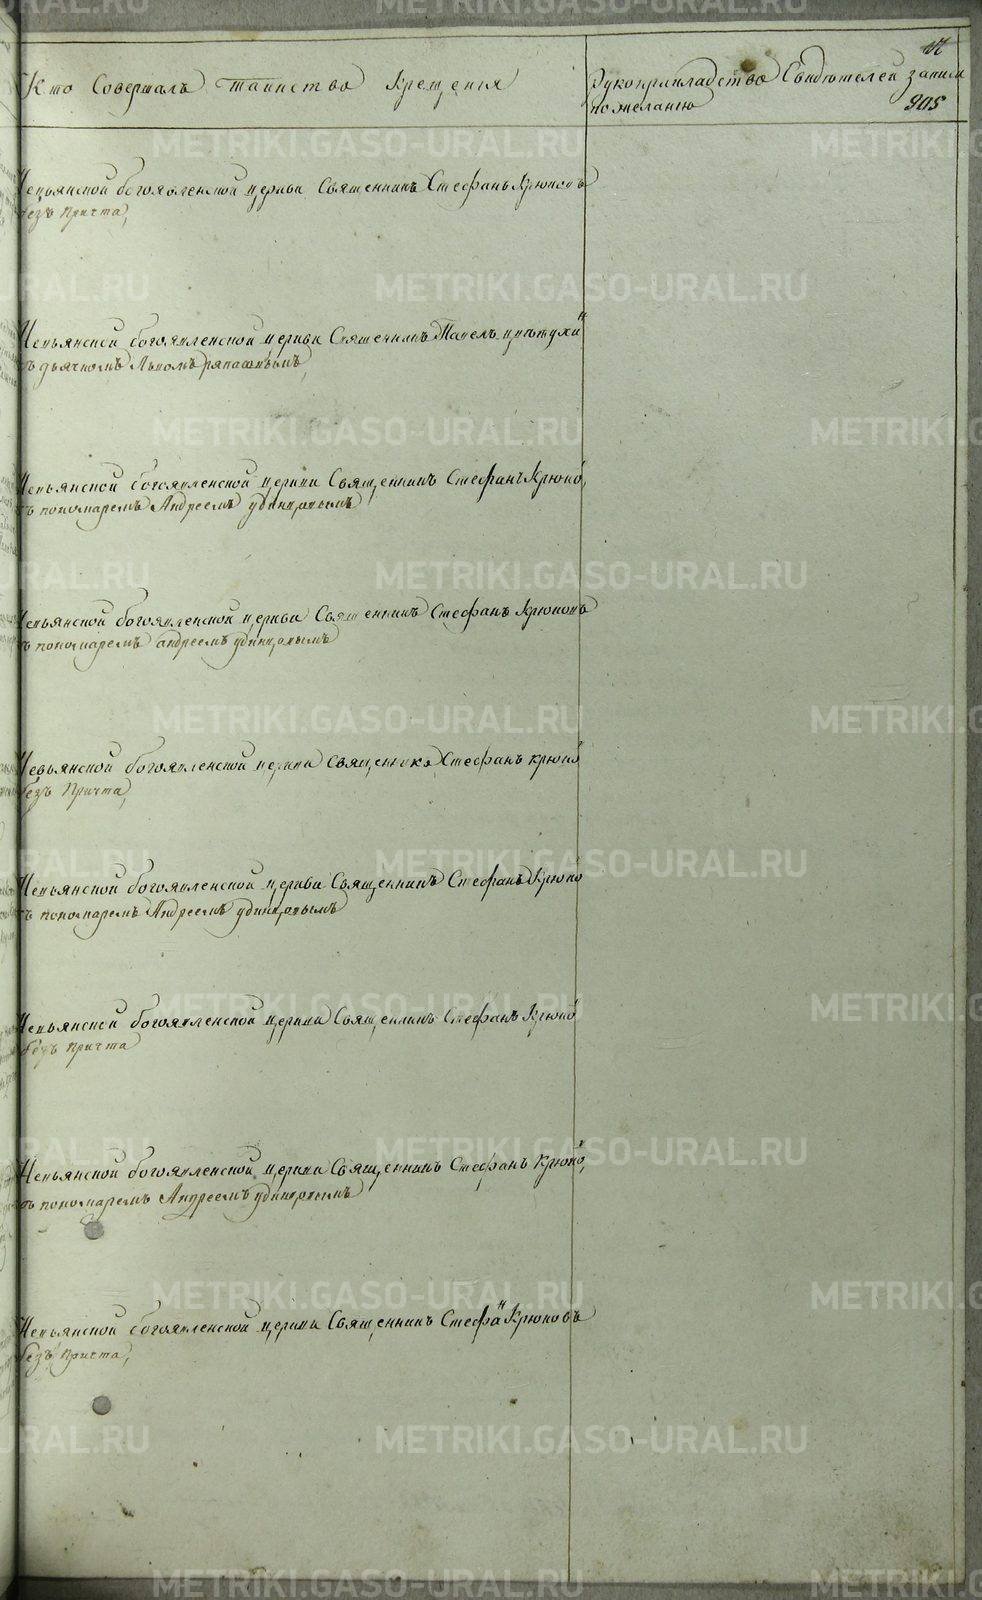 Кто Совершалъ таинство крещенія
Рукоприкладство Свидѣтелей записи
по желанію
905
Невьянской богоявленской церкви Священникъ Стефанъ Крюковъ
безъ Причта,
Невьянской богоявленской церкви Священникъ Павелъ
съ дьячкомъ Львомъ
Невьянской богоявленской церкви Священникъ Стефанъ Крюко
съ пономаремъ Андреемъ удинцовымъ
Невьянской богоявленской церкви Священникъ Стефанъ Крюковъ
съ пономаремъ андреемъ удинцовымъ
Невьянской богоявленской церкви священикъ Стефанъ крюко
безъ Причта,
Невьянской богоявленской церкви Священникъ Стефанъ Крюко
съ пономаремъ Андреемъ удинцовымъ
Невьянской богоявленской церкви Священникъ Стефанъ Крюко
безъ Причта
Невьянской богоявленской церкви Священникъ Стефанъ Крюко
съ пономаремъ Андреемъ удинцовымъ
Невьянской богоявленской церкви Священникъ Стефанъ Крюковъ
безъ Причта,
METRIKI.GASO-URAL.RU